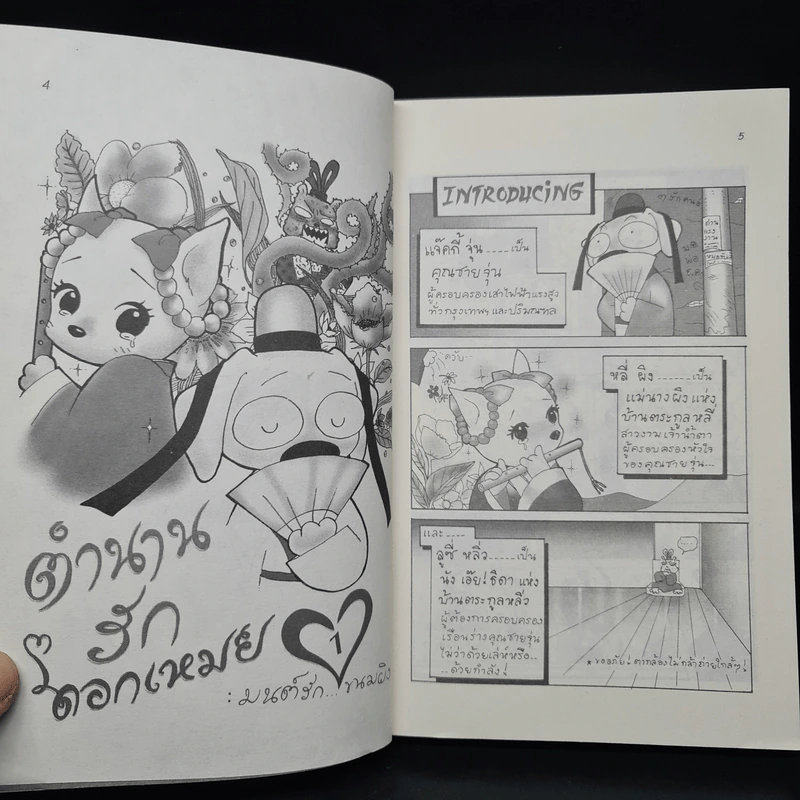 4
ตำนาน
รัก
ดอกเหมย
1
: มนต์รัก... ขนมผิง
5
INTRODUCING
แจ๊คกี้ จุ่น......เป็น
คุณชายจุ่น
ผู้ครอบครองเสาไฟฟ้าแรงสูง
ทั่วกรุงเทพฯ และปริมณฑล
ควับ..
หลี่ ผิง......เป็น
แม่นางผิงแห่ง
บ้านตระกูลหลี่
สาวงามเจ้าน้ำตา
ผู้ครอบครองหัวใจ
ของคุณชายจุ่น...
และ....
ลูซี่ หลิ่ว......เป็น
นัง เอ๊ย! ธิดา แห่ง
บ้านตระกูลหลิ่ว
ผู้ต้องการครอบครอง
เรือนร่างคุณชายจุ่น
ไม่ว่าด้วยเล่ห์หรือ..
..ด้วยกำลัง!
* ขออภัย! ตากล้องไม่กล้าถ่ายใกล้ๆ!